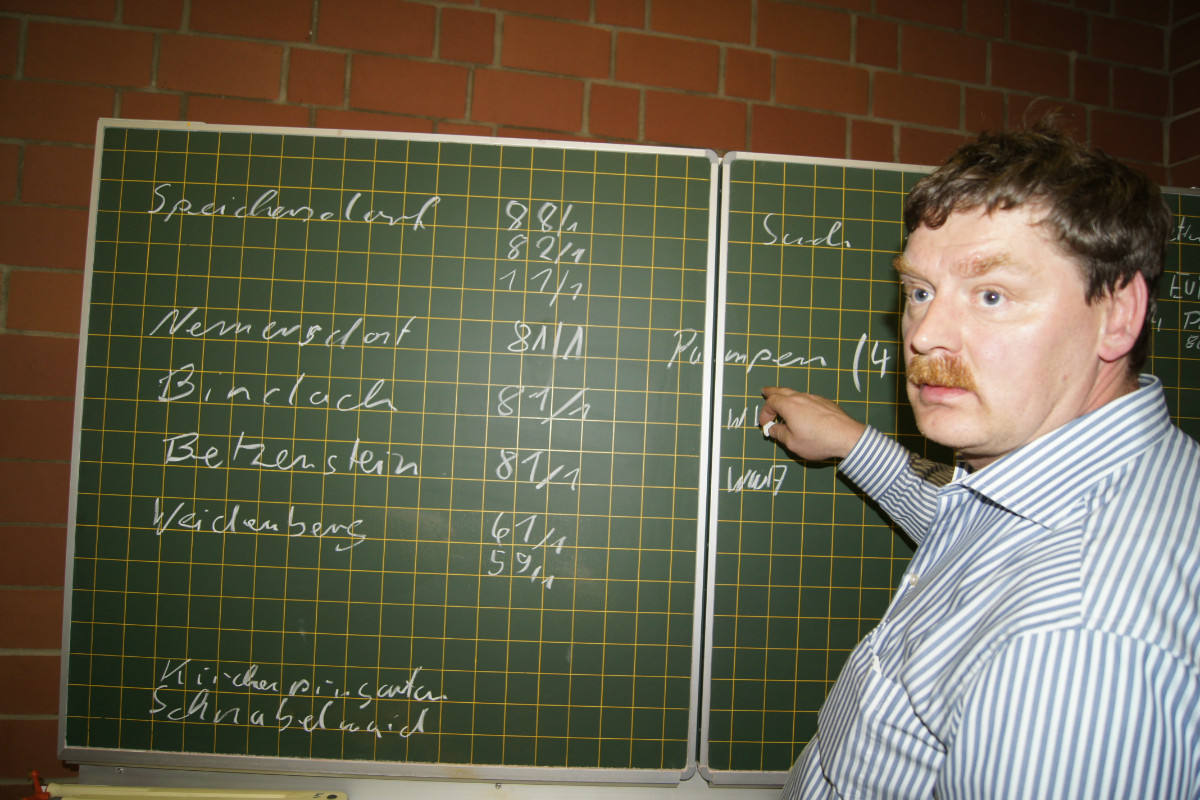 Speichersdorf 88/1
82/1
11/1
Nemmersdorf 81/1
Bindlach 81/1
Betzenstein 81/1
Weidenberg 61/1
59/1
Kirchenpingarten
Schnabelwaid
Such
Pumpen (4